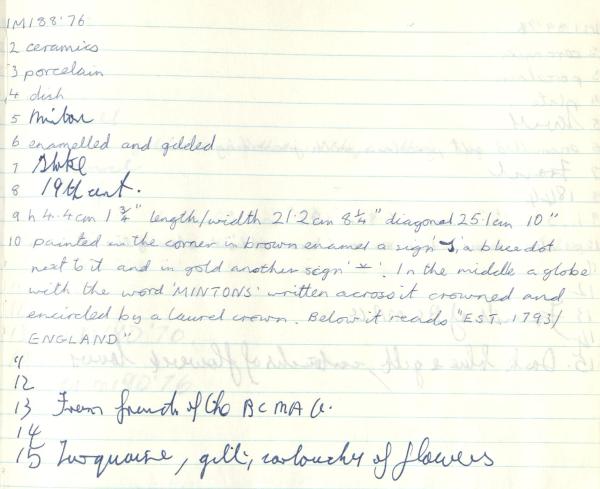 1 M188'76
2 ceramics
3 porcelain
4 dish
5 Minton
6 enamelled and gilded
7 Stoke
8 19th cent.
9 h 4.4cm 1 3/4" length/width 21.2cm 8 1/4" diagonal 25.1cm 10"
10 painted in the corner in brown enamel a sign , a blue dot
next to it and in gold another sign ' '. In the middle a globe
with the word 'MINTONS' written across it crowned and
encircled by a laurel crown. Below it reads "EST. 1793/
ENGLAND"
11
12
13 From friends of the BCMAG.
14
15 Turquoise, gilt, cartouches of flowers